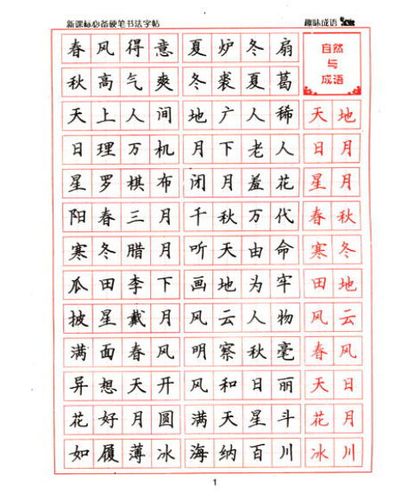 新课标必备硬笔书法字帖 趣味成语
春风得意 夏炉冬扇
自然
与
成语
秋高气爽 冬裘夏葛
天上人间 地广人稀 天地
日理万机 月下老人 日月
星罗棋布 闭月羞花 星月
阳春三月 千秋万代 春秋
寒冬腊月 听天由命 寒冬
瓜田李下 画地为牢 田地
披星戴月 风云人物 风云
满面春风 明察秋毫 春风
异想天开 风和日丽 天日
花好月圆 满天星斗 花月
如履薄冰 海纳百川 冰川
1